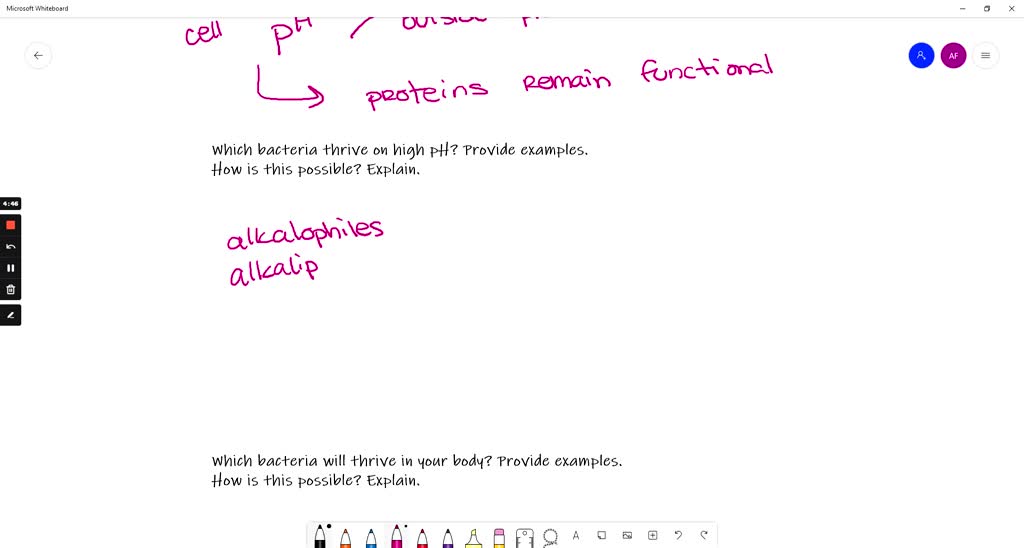 Microsoft Whiteboard
cell pH outside
AF
proteins remain functional
Which bacteria thrive on high pH? Provide examples.
How is this possible? Explain.
4:46
alkalophiles
alkalip
Which bacteria will thrive in your body? Provide examples.
How is this possible? Explain.
A